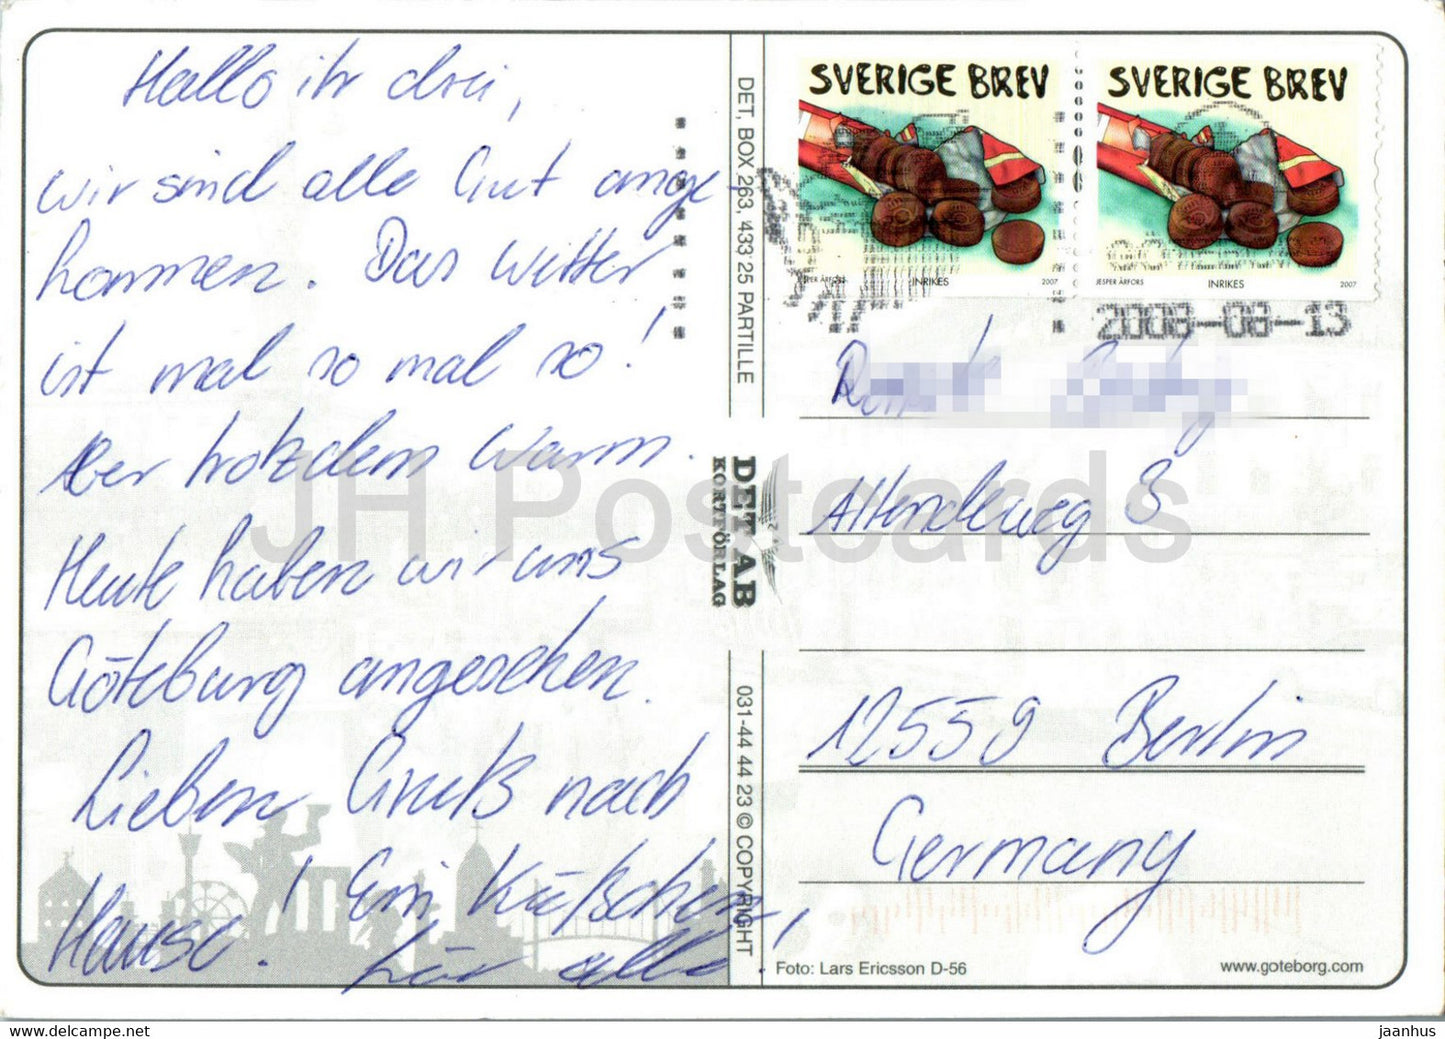 Hallo ihr drei,
wir sind alle Gut ange-
kommen. Das Wetter
ist mal so mal so!
Aber trotzdem warm.
Heute haben wir uns
Göteburg angesehen.
Lieben Gruß nach
Hause! Ein Küßchen,
für alle.
DET, BOX 263, 433 25 PARTILLE
DET AB
KORTFÖRLAG
031-44 44 23 © COPYRIGHT
SVERIGE BREV
JESPER ÅRFORS INRIKES 2007
SVERIGE BREV
JESPER ÅRFORS INRIKES 2007
2008-08-13
Attendeweg 3
12559 Berlin
Germany
Foto: Lars Ericsson D-56
www.goteborg.com
JH Postcards
www.delcampe.net
jaanhus